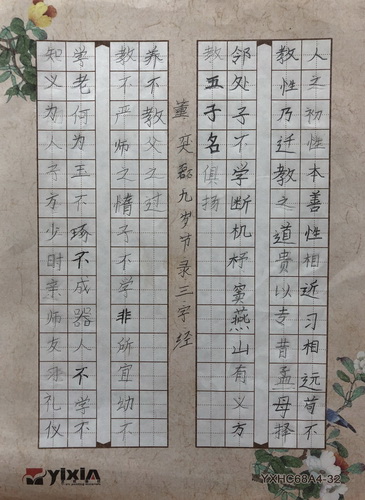 人之初性本善性相近习相远苟不
教性乃迁教之道贵以专昔孟母择
邻处子不学断机杼窦燕山有义方
教五子名俱扬
董奕磊九岁节录三字经
养不教父之过
教不严师之惰子不学非所宜幼不
学老何为玉不琢不成器人不学不
知义为人子方少时亲师友习礼仪
yixiA
YXHC68A4-32